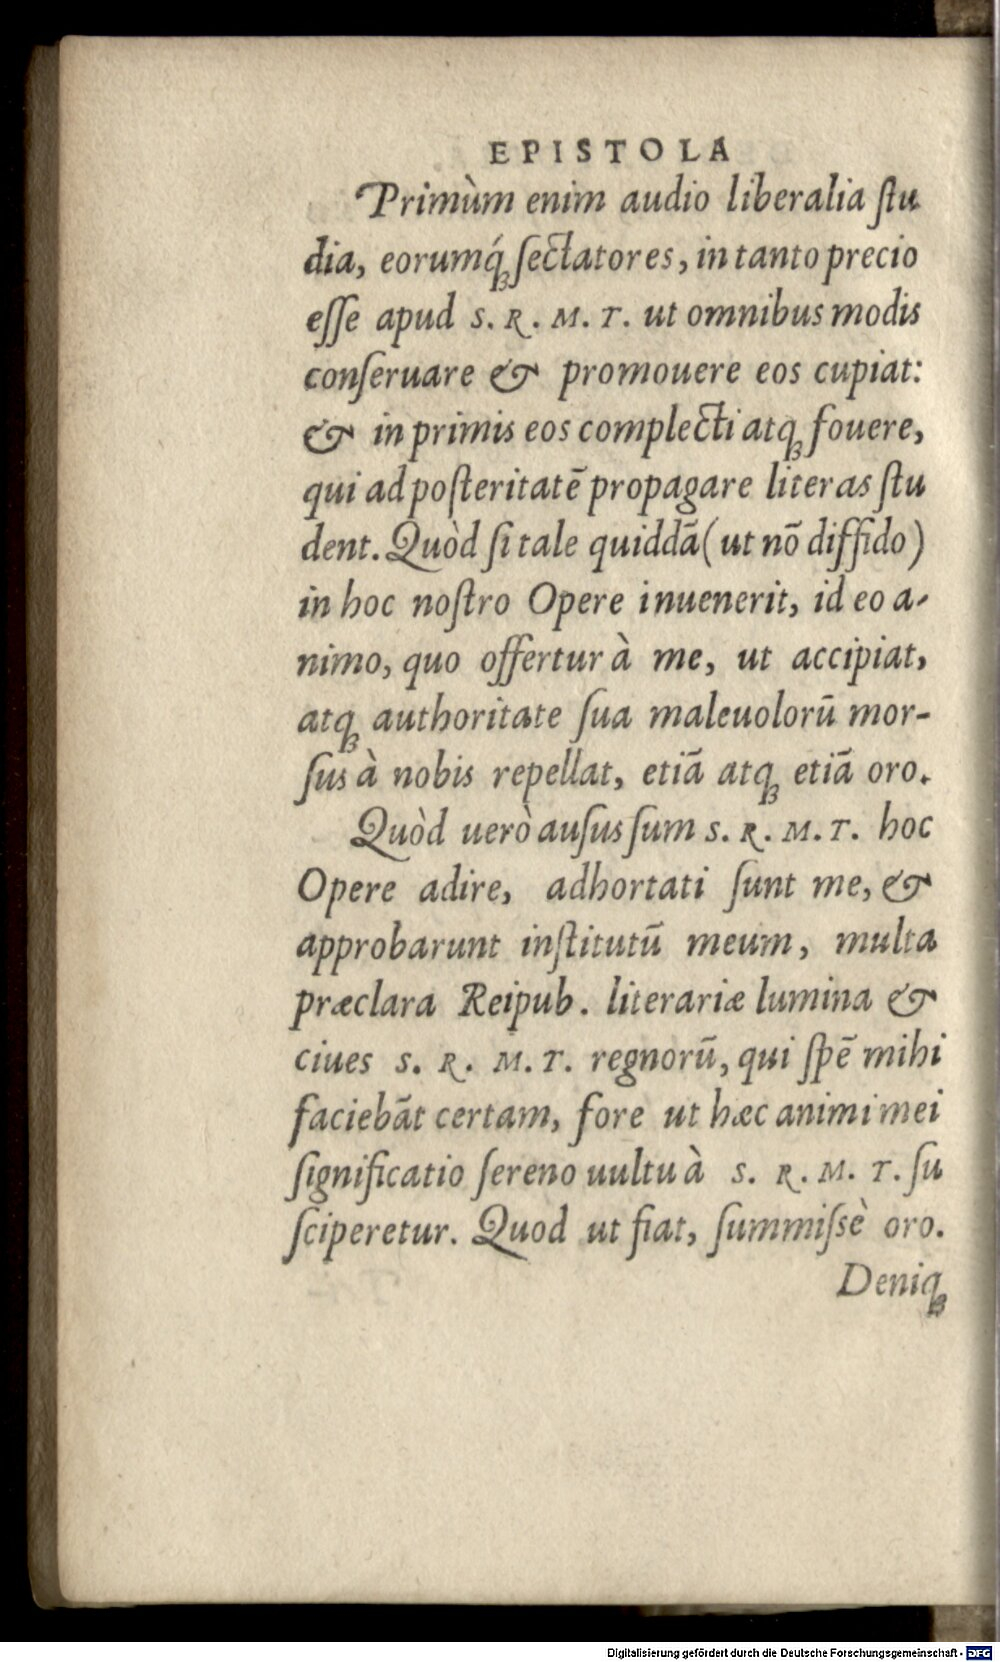 EPISTOLA
Primùm enim audio liberalia ſtu
dia, eorumq́ꝫ ſectatores, in tanto precio
eſſe apud S. R. M. T. ut omnibus modis
conſeruare & promouere eos cupiat:
& in primis eos complecti atqꝫ fouere,
qui ad poſteritatẽ propagare literas ſtu
dent. Quòd ſi tale quiddã (ut nõ diffido)
in hoc noſtro Opere inuenerit, id eo a-
nimo, quo offertur à me, ut accipiat,
atqꝫ authoritate ſua maleuolorũ mor-
ſus à nobis repellat, etiã atqꝫ etiã oro.
Quòd uerò auſus ſum S. R. M. T. hoc
Opere adire, adhortati ſunt me, &
approbarunt inſtitutũ meum, multa
præclara Reipub. literariæ lumina &
ciues S. R. M. T. regnorũ, qui ſpẽ mihi
faciebãt certam, fore ut hæc animi mei
ſignificatio ſereno uultu à S. R. M. T. ſu
ſciperetur. Quod ut fiat, ſummiſsè oro.
Deniqꝫ
Digitalisierung gefördert durch die Deutsche Forschungsgemeinschaft - DFG